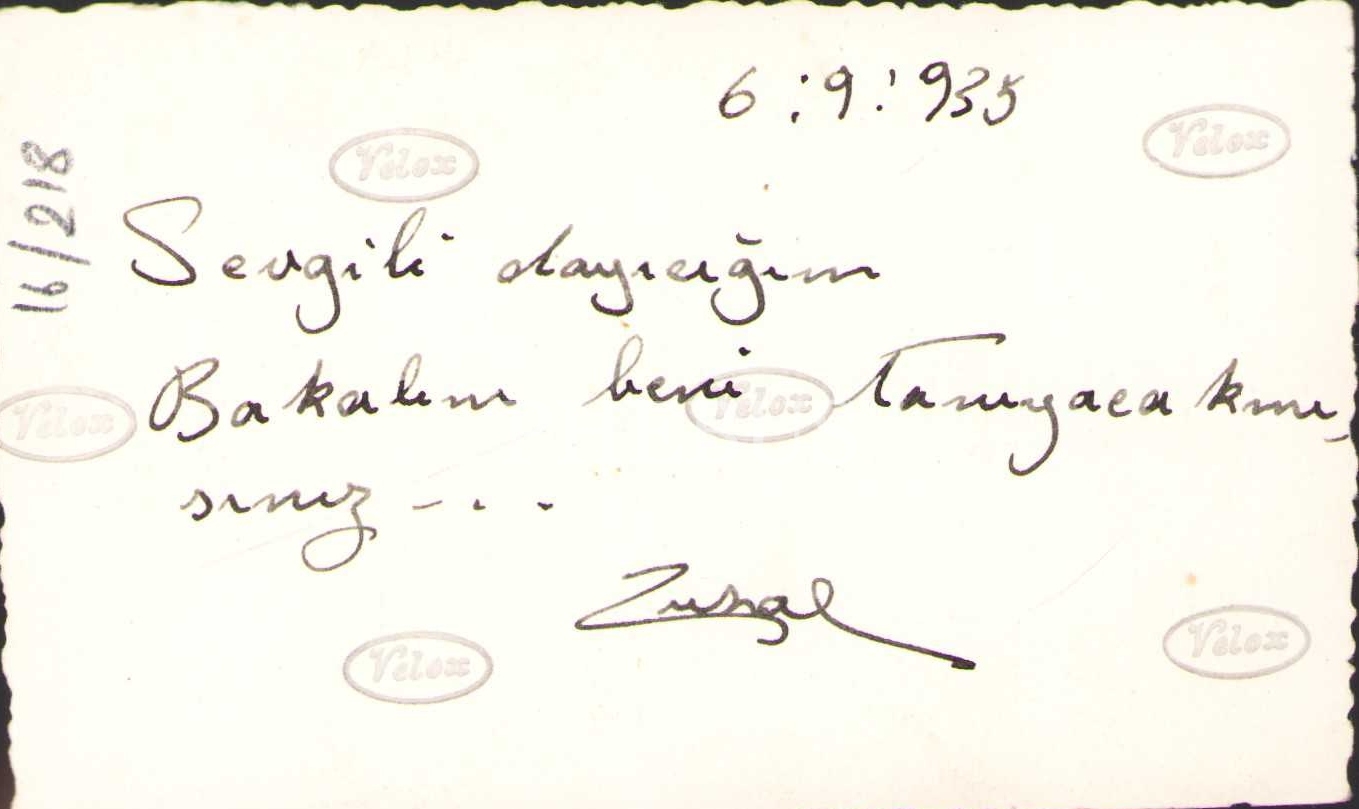 6:9:935
16/218
Velox
Velox
Sevgili dayıcığım
Bakalım beni tanıyacakmı
Velox
Velox
sınız - . .
Velox
Velox